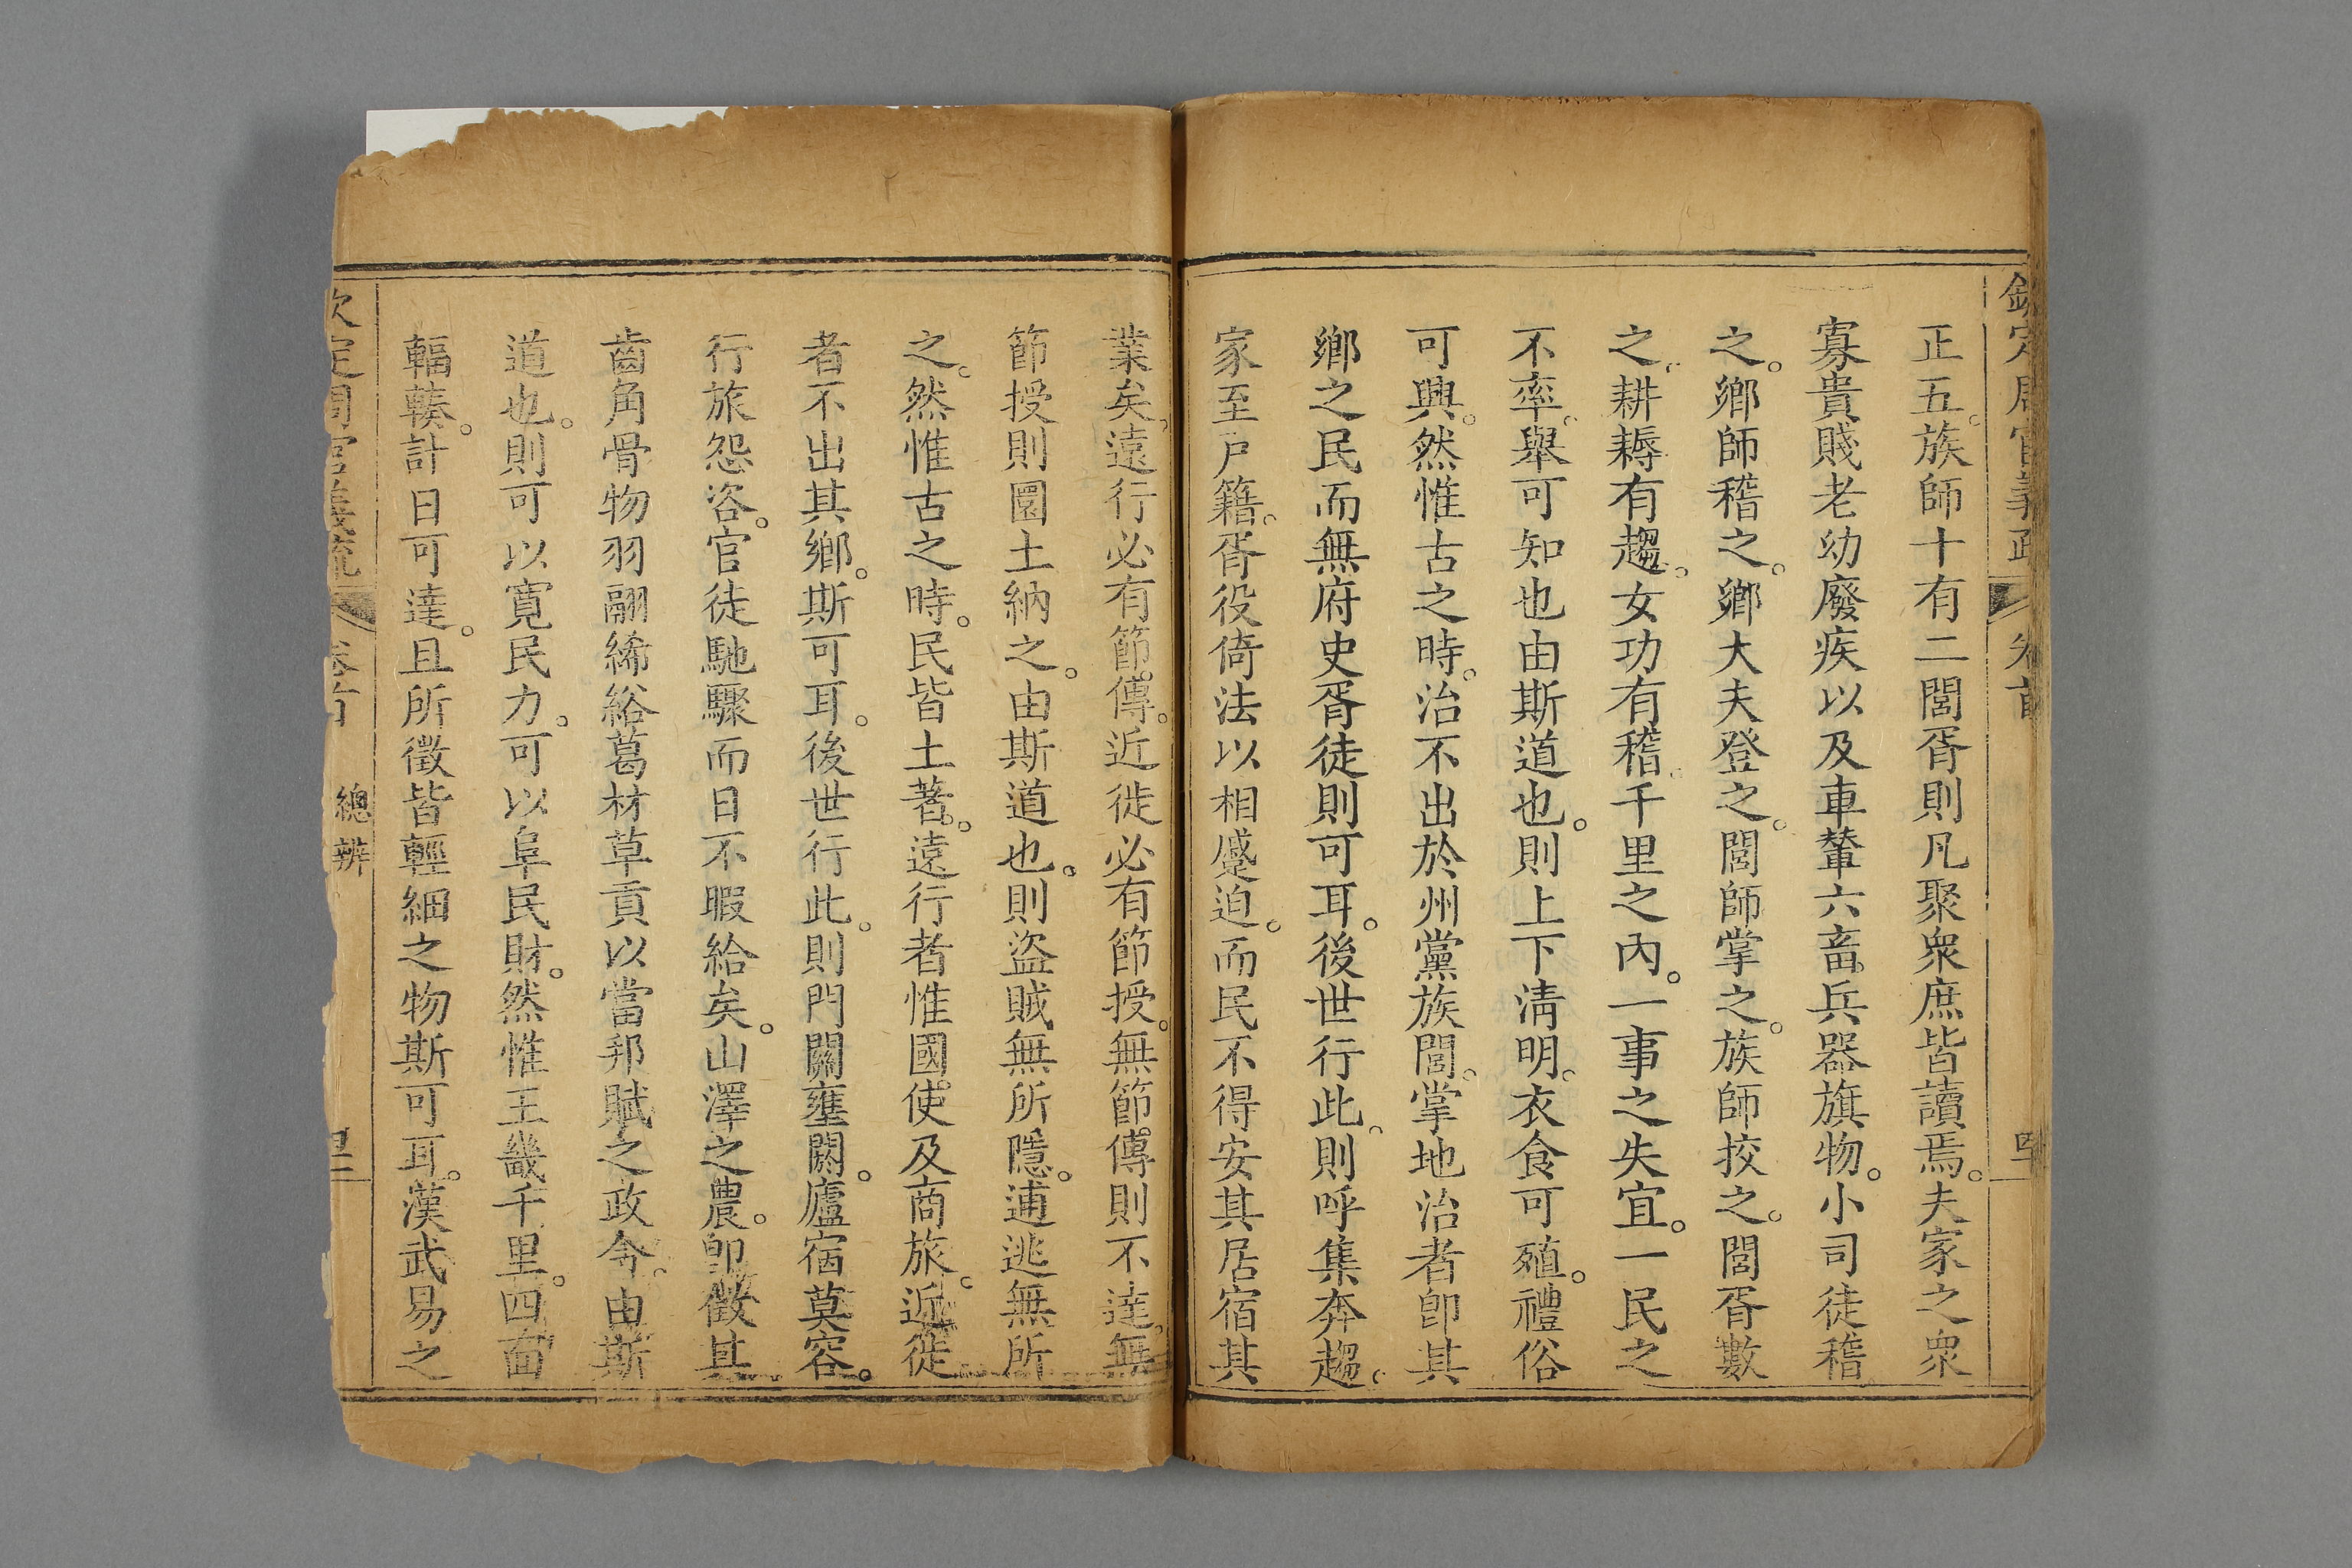 欽定周官義疏 卷首
正五。族師十有二。閭胥則凡聚衆庶皆讀焉。夫家之衆
寡貴賤老幼廢疾以及車輦六畜。兵器旗物。小司徒稽
之。鄉師稽之。鄉大夫登之。閭師掌之。族師挍之。閭胥數
之。耕耨有趨。女功有稽。千里之內。一事之失宜。一民之
不率。舉可知也由斯道也。則上下淸明。衣食可殖。禮俗
可興。然惟古之時。治不出於州黨族閭。掌地治者卽其
鄉之民而無府史胥徒則可耳。後世行此。則呼集奔趨。
家至戸籍。胥役倚法以相蹙迫。而民不得安其居宿其
業矣。遠行必有節。傳。近徙必有節授。無節。傳則不達。無
節授則圜土納之。由斯道也。則盜賊無所隱。逋逃無所
之。然惟古之時。民皆土著。遠行者惟國。使及商旅。近徙
者不出其鄉。斯可耳。後世行此。則門關壅閼。廬宿莫容。
行旅怨咨。官徒馳驟而日不暇給矣。山澤之農。卽徵其
齒角骨物羽翮絺綌葛材草貢以當邦賦之政令。由斯
道也。則可以寬民力。可以阜民財。然惟王畿千里。四面
輻輳。計日可達。且所徵皆輕細之物斯可耳。漢武易之
欽定周官義疏 卷首 總辨